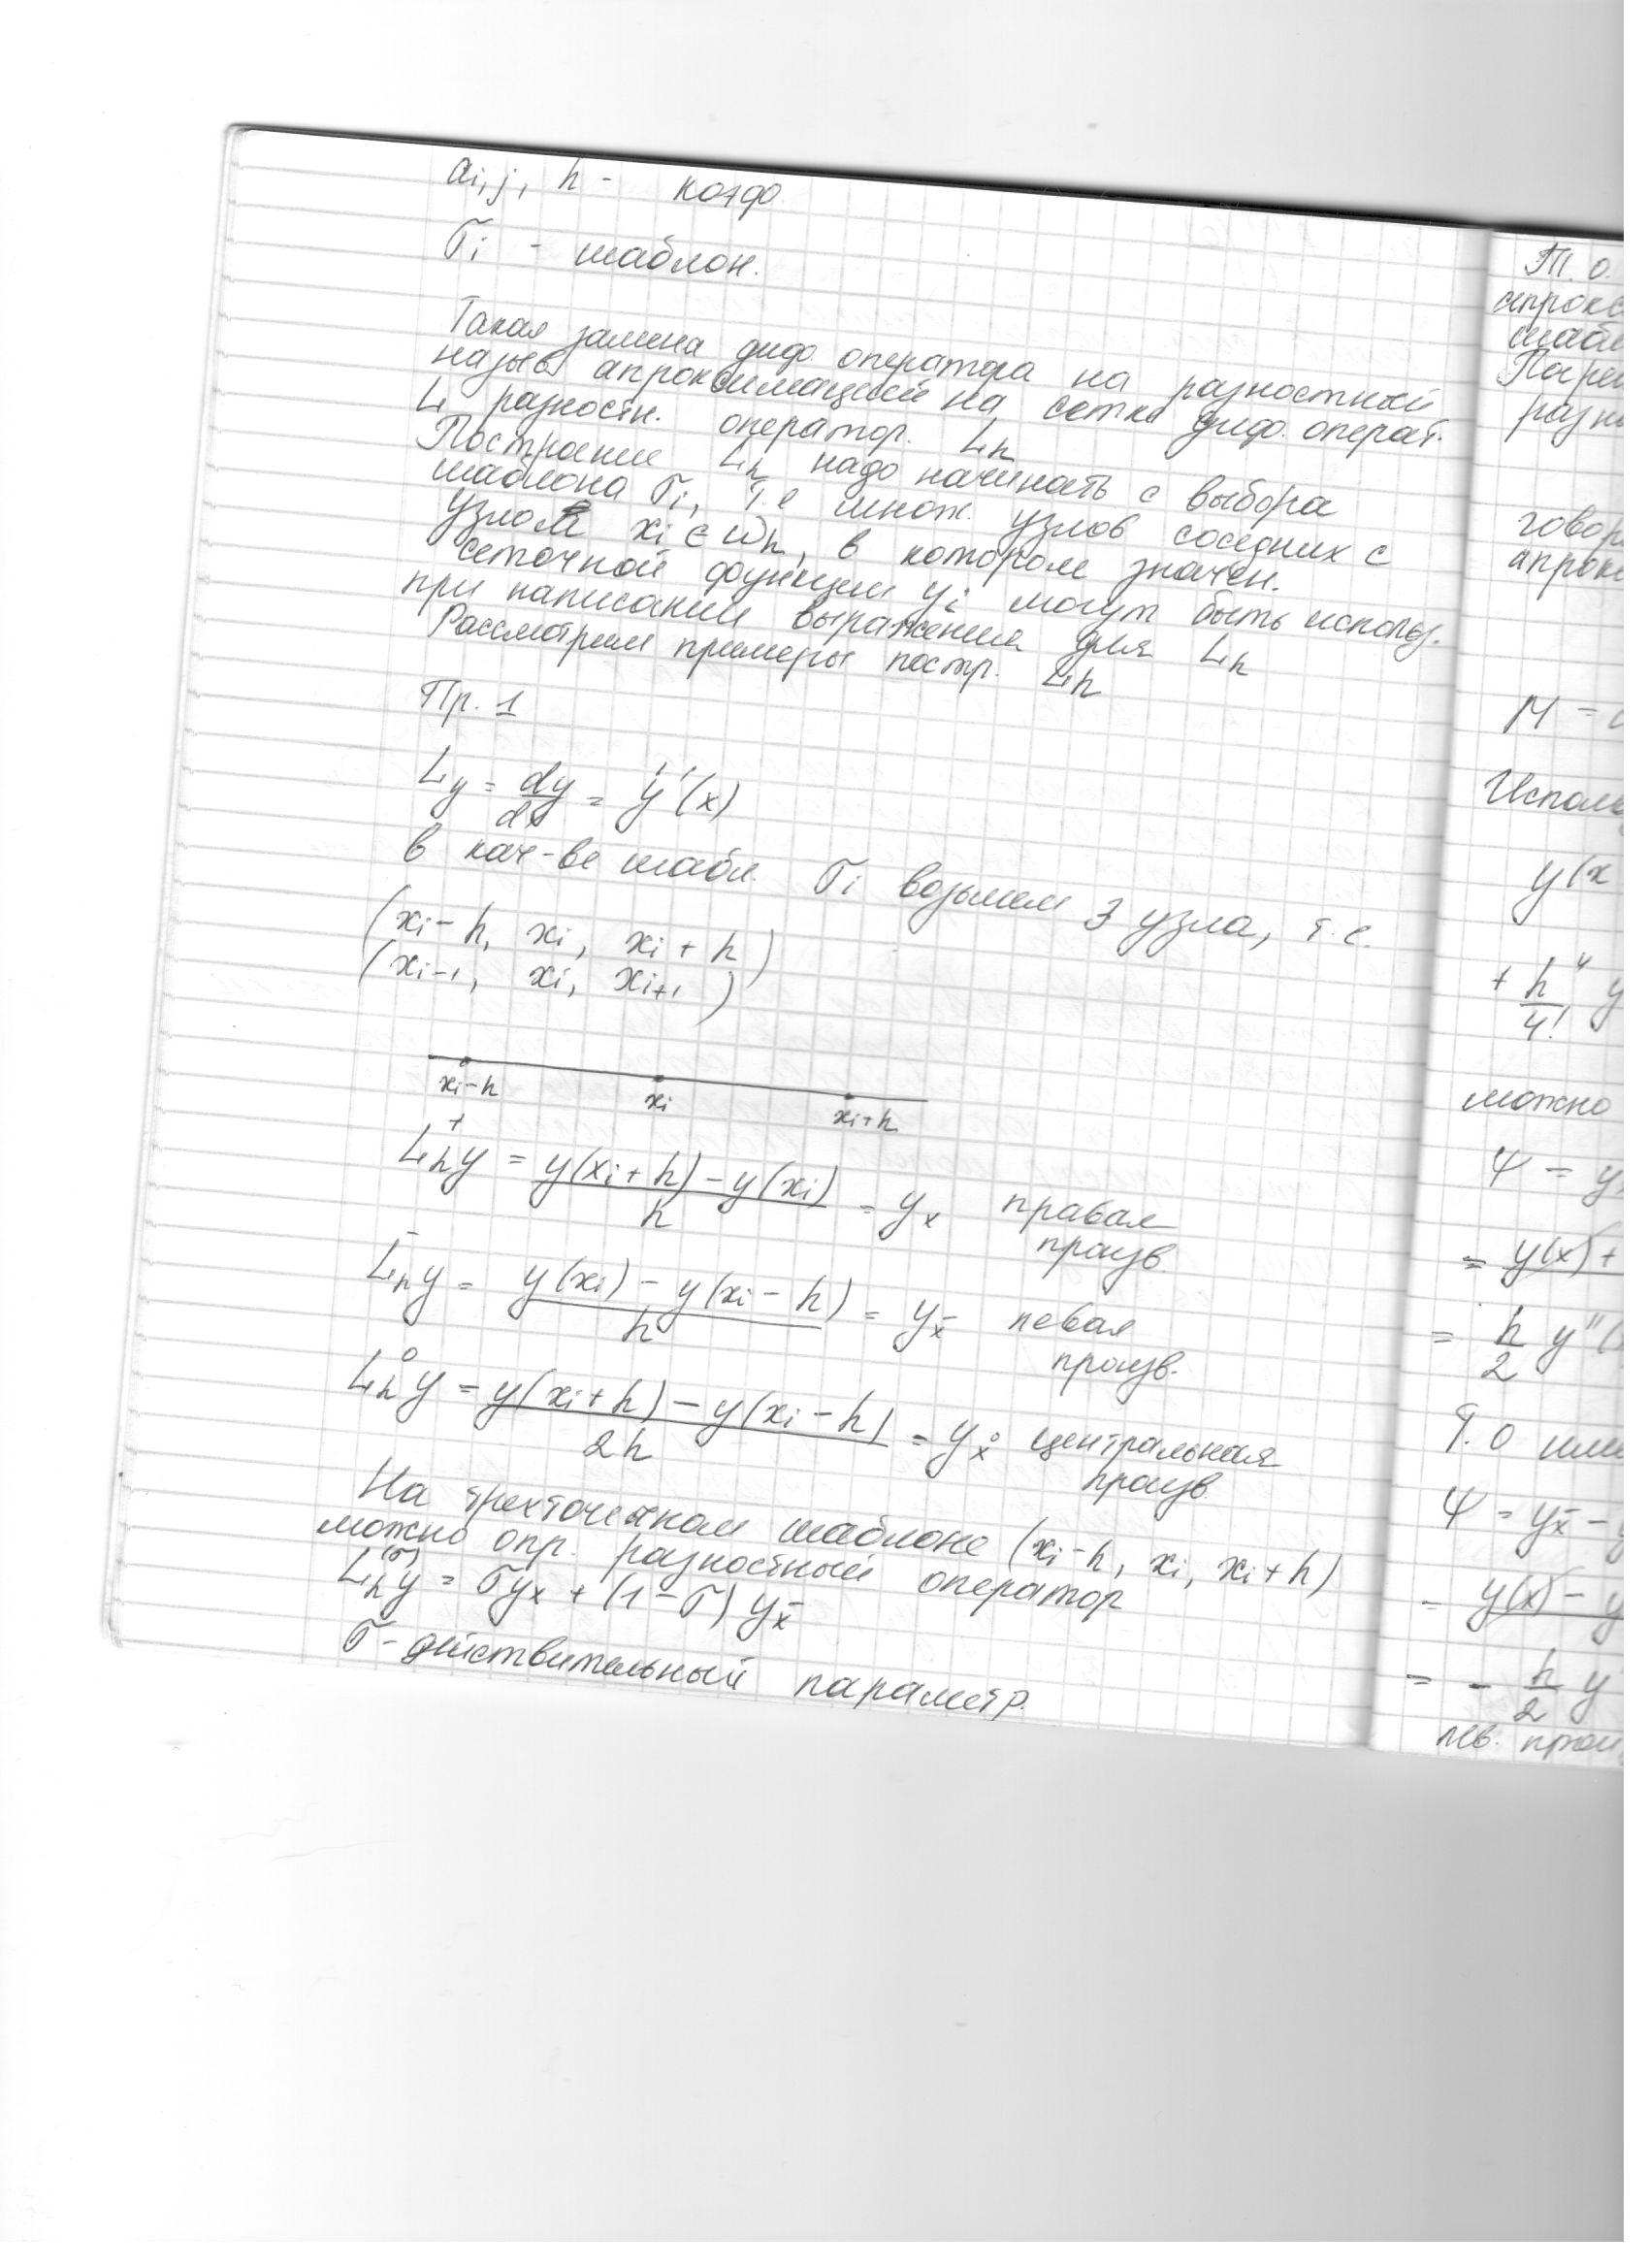 ai,j, h - коэф.
σi - шаблон.
Такая замена диф. оператора на разностный
назыв апроксимацией на сетке диф. операт.
L разностн. оператор. Lh
Построение Lh надо начинать с выбора
шаблона σi, т.е множ. узлов соседних с
узлом xi ∈ ωh, в котором значен.
сеточной функции yi могут быть использ.
при написании выражения для Lh
Рассмотрим примеры постр. Lh
Пр. 1
Ly = dy/dx = y'(x)
в кач-ве шабл. σi возьмем 3 узла, т.е.
(xi - h, xi, xi + h)
(xi-1, xi, xi+1)
xi-h xi xi+h
Lh⁺y = (y(xi + h) - y(xi))/h = yx правая
произв.
Lh⁻y = (y(xi) - y(xi - h))/h = yx̄ левая
произв.
Lh⁰y = (y(xi + h) - y(xi - h))/2h = yx° центральная
произв.
На трехточечном шаблоне (xi-h, xi, xi+h)
можно опр. разностный оператор
Lh^(σ)y = σyx + (1-σ)yx̄
σ - действительный параметр.
Т. о.
апрокс
шабл
Погре
разн
говор
апрокс
Исполь
y(x
+ h⁴/4! y
можно
ψ = y
= y(x) +
= h/2 y''(
Т.О име
ψ = yx̄ - y
= y(x) - y
= - h/2 y
лев. прои